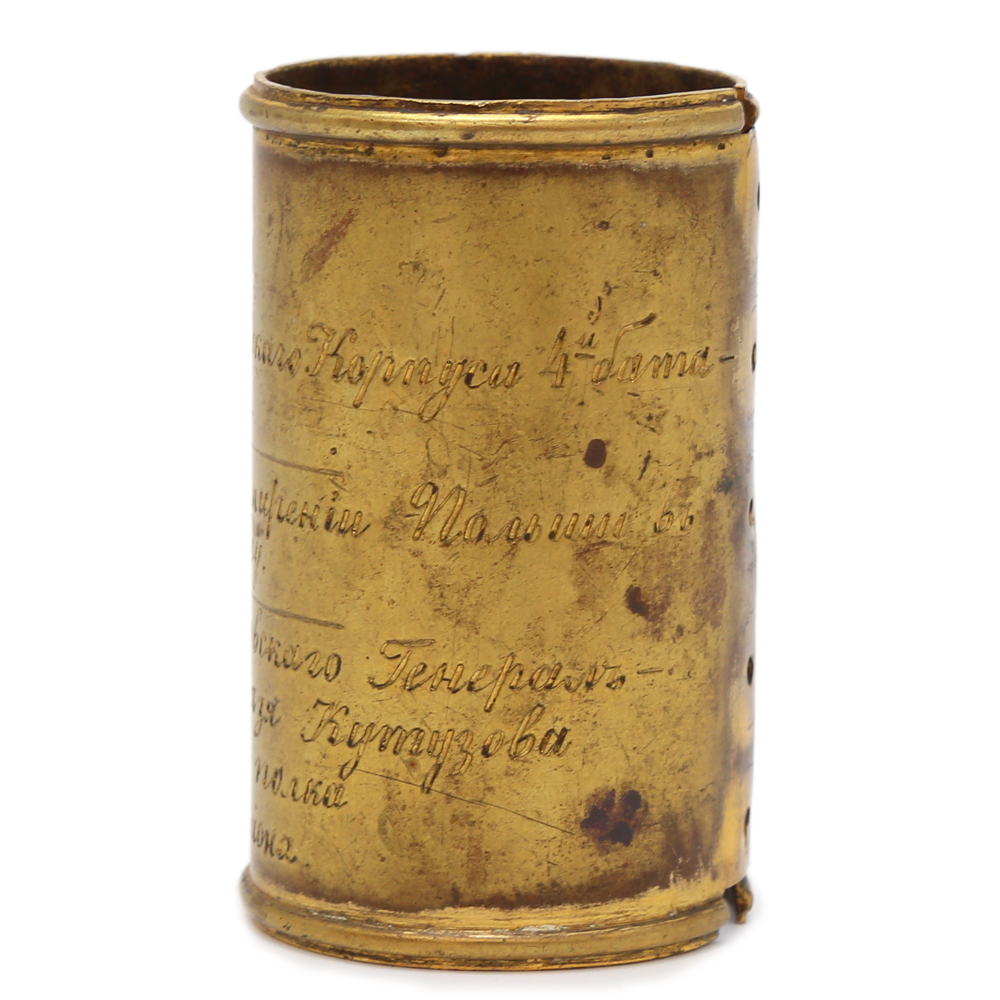 каго Корпуса 4й бата-
иреніи Польши въ
у.
вскаго Генералъ-
ля Кутузова
полка
іона